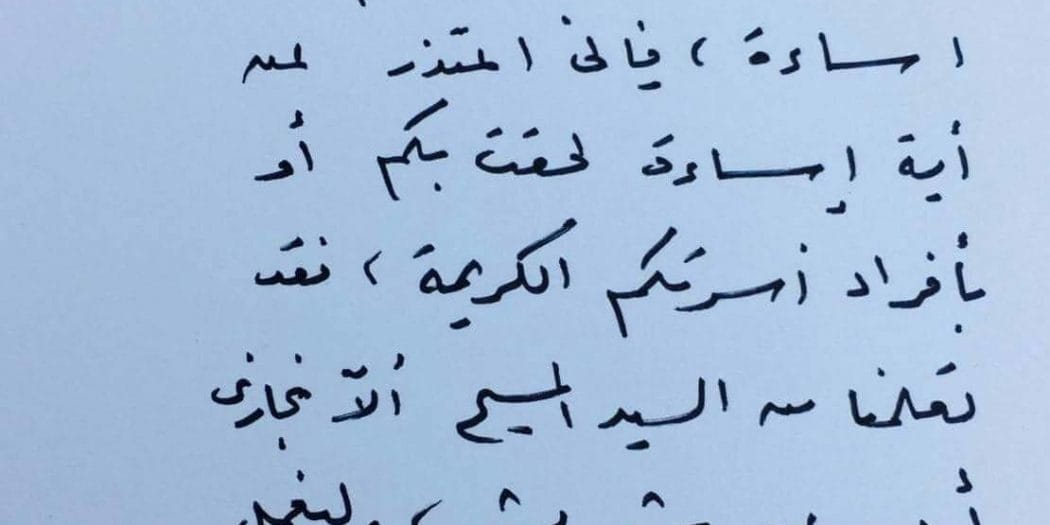 اساءة ، فإنى اعتذر لمن
أية إساءة لحقت بكم أو
بأفراد أسرتكم الكريمة ، فقد
تعلمنا من السيد المسيح ألاّ نجازى